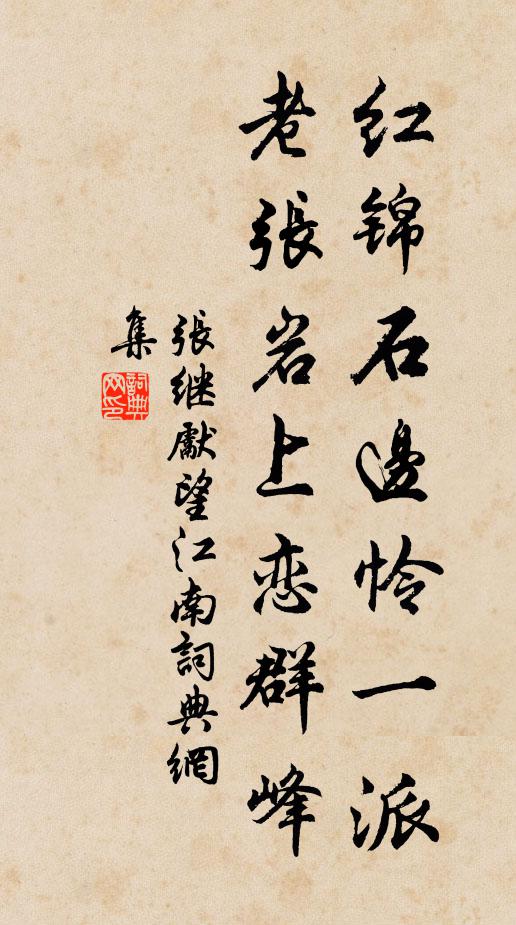 红锦石邊怜一派
老張岩上恋群峰
張继獻望江南詞典網
集
詞典網印